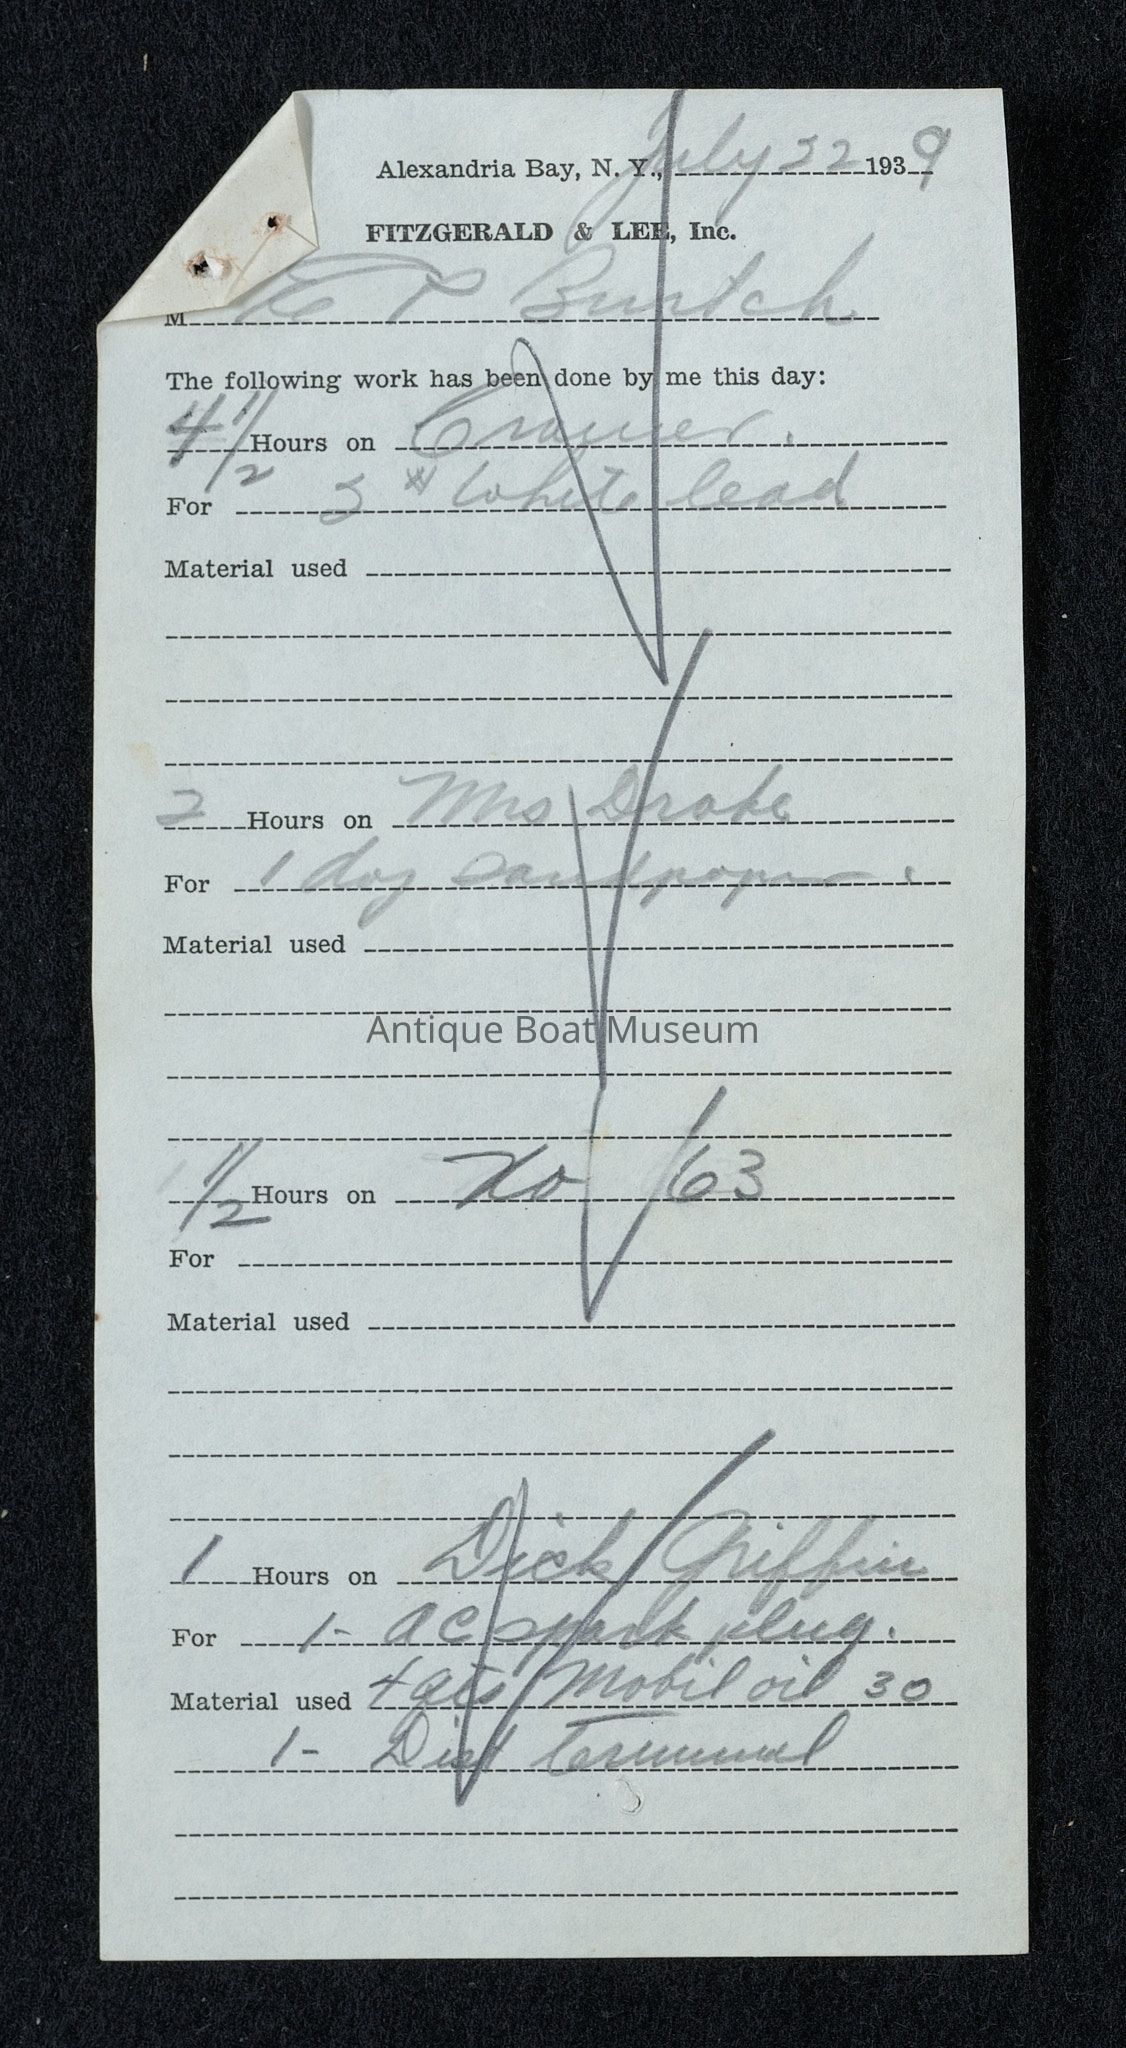 Alexandria Bay, N. Y., July 22 1939
FITZGERALD & LEE, Inc.
M P Burtch
The following work has been done by me this day:
4 1/2 Hours on Cramer.
For 3 # White lead
Material used
2 Hours on Mrs Drake
For 1 doz Sandpaper.
Material used
Antique Boat Museum
1/2 Hours on No 63
For
Material used
1 Hours on Dick Griffin
For 1- AC spark plug.
Material used 4 qts Mobil oil 30
1- Dist Terminal